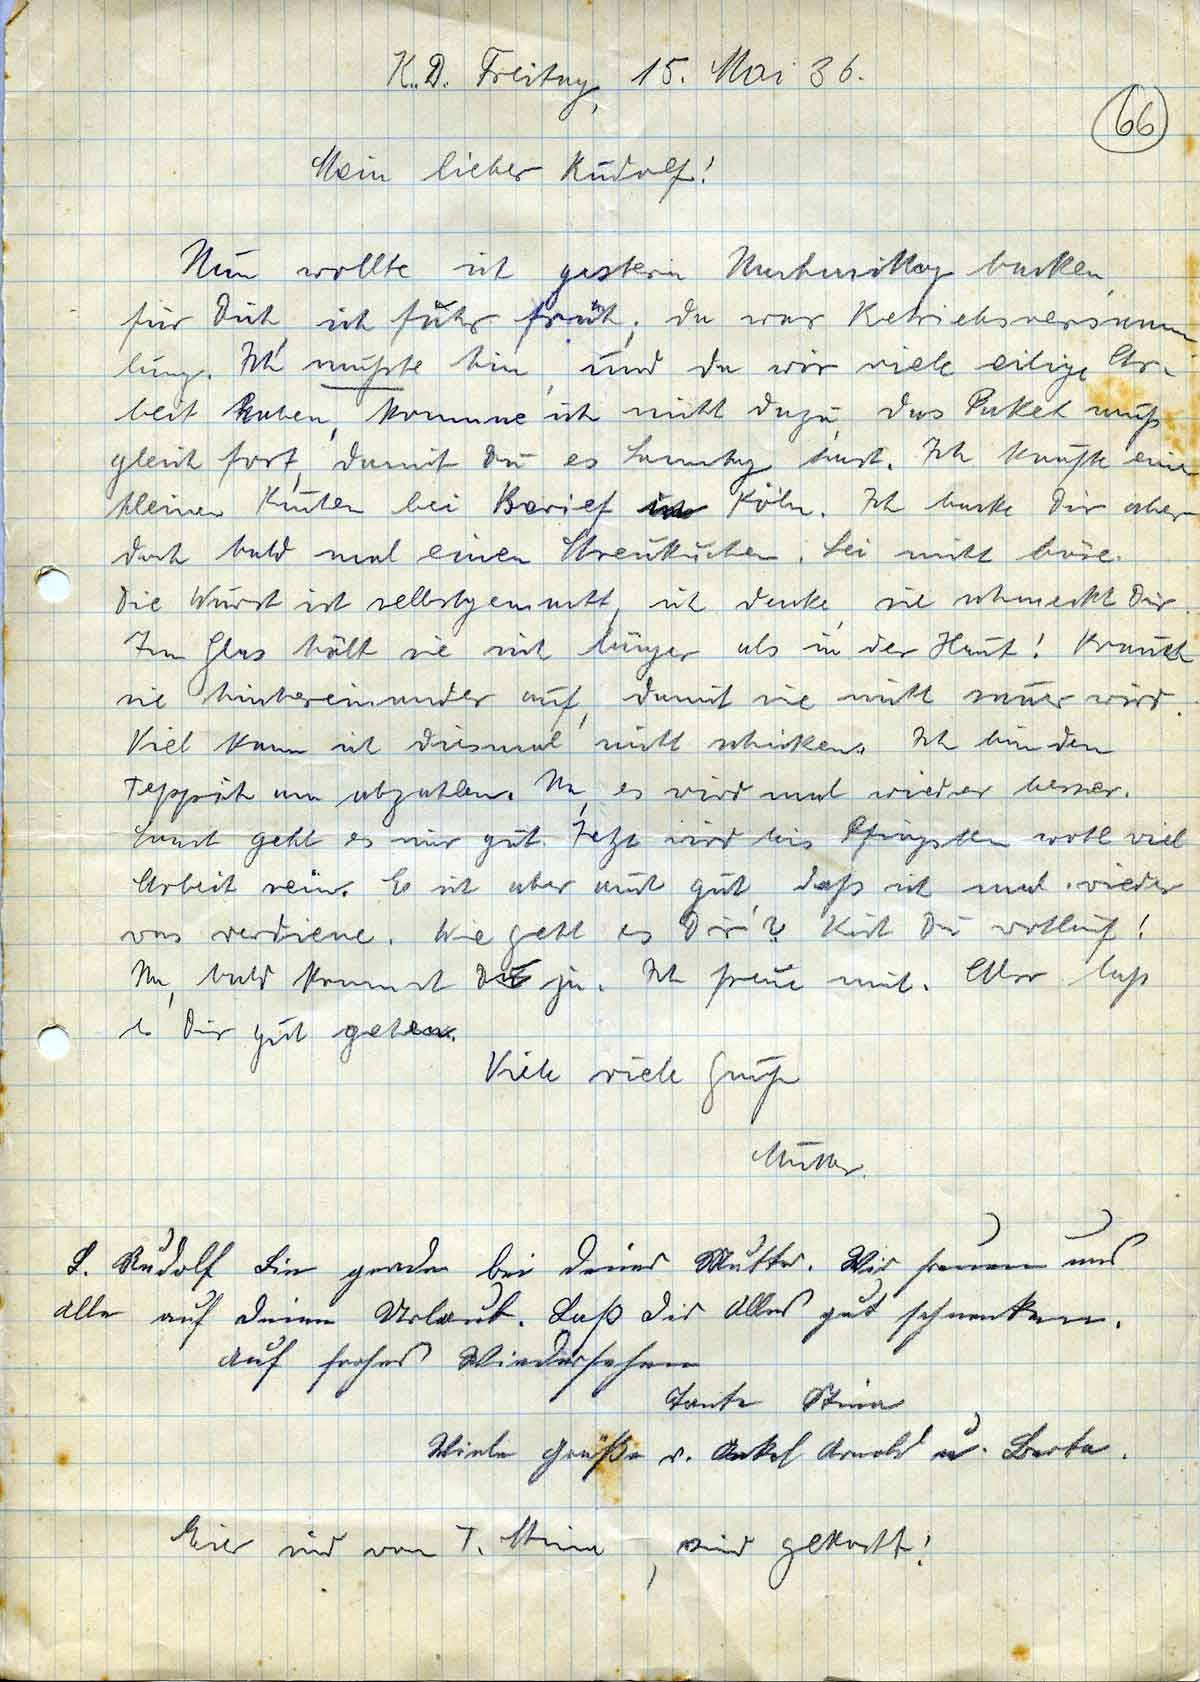 K.D. Freitag, 15. Mai 36.
66
Mein lieber Rudolf!
Nun wollte ich gestern Nachmittag backen
für Dich, ich fuhr früh, da war Betriebsversamm
lung. Ich mußte hin, und da wir viele eilige Ar-
beit haben, komme ich nicht dazu, das Paket muß
gleich fort, damit Du es Sonntag hast. Ich kaufte einen
kleinen Kuchen bei Köln. Ich backe Dir aber
doch bald mal einen Streukuchen. Sei nicht böse.
Die Wurst ist selbstgemacht, ich denke, sie schmeckt Dir.
Im Glas hält sie sich länger als in der Haut! Brauch
sie hintereinander auf, damit sie nicht sauer wird.
Viel kann ich diesmal nicht schicken. Ich bin den
Teppich am abzahlen. Na, es wird mal wieder besser.
Sonst geht es mir gut. Jetzt wird bis Pfingsten wohl viel
Arbeit sein. Es ist aber auch gut, daß ich mal wieder
was verdiene. Wie geht es Dir? Bist Du wohlauf!
Na, bald kommst Du ja. Ich freue mich. Also laß
es Dir gut gehen.
Viele viele Grüße
Mutter.
L. Rudolf Bin gerade bei Deiner Mutter. Wir freuen uns
alle auf Deinen Urlaub. Laß Dir Alles gut schmecken.
Auf frohes Wiedersehen
Tante Stina
Viele Grüße v. Onkel Arnold u. Berta.
Eier sind von T. Stina, sind gekocht!